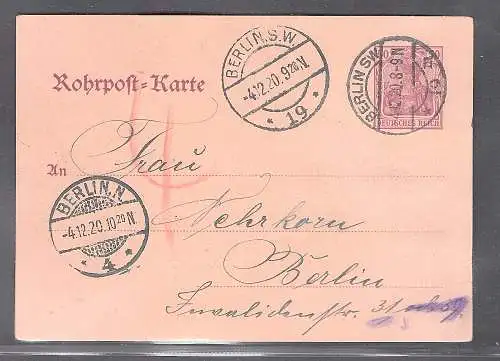 BERLIN, S.W.
-4.12.20.9 20 N
* 19 *
BERLIN SW
12.20.8-9N
DEUTSCHES REICH
Rohrpost=Karte
An
Frau
Nehrkorn
Berlin
Invalidenstr. 31
BERLIN, N.
-4.12.20.10 20 N
* 4 *